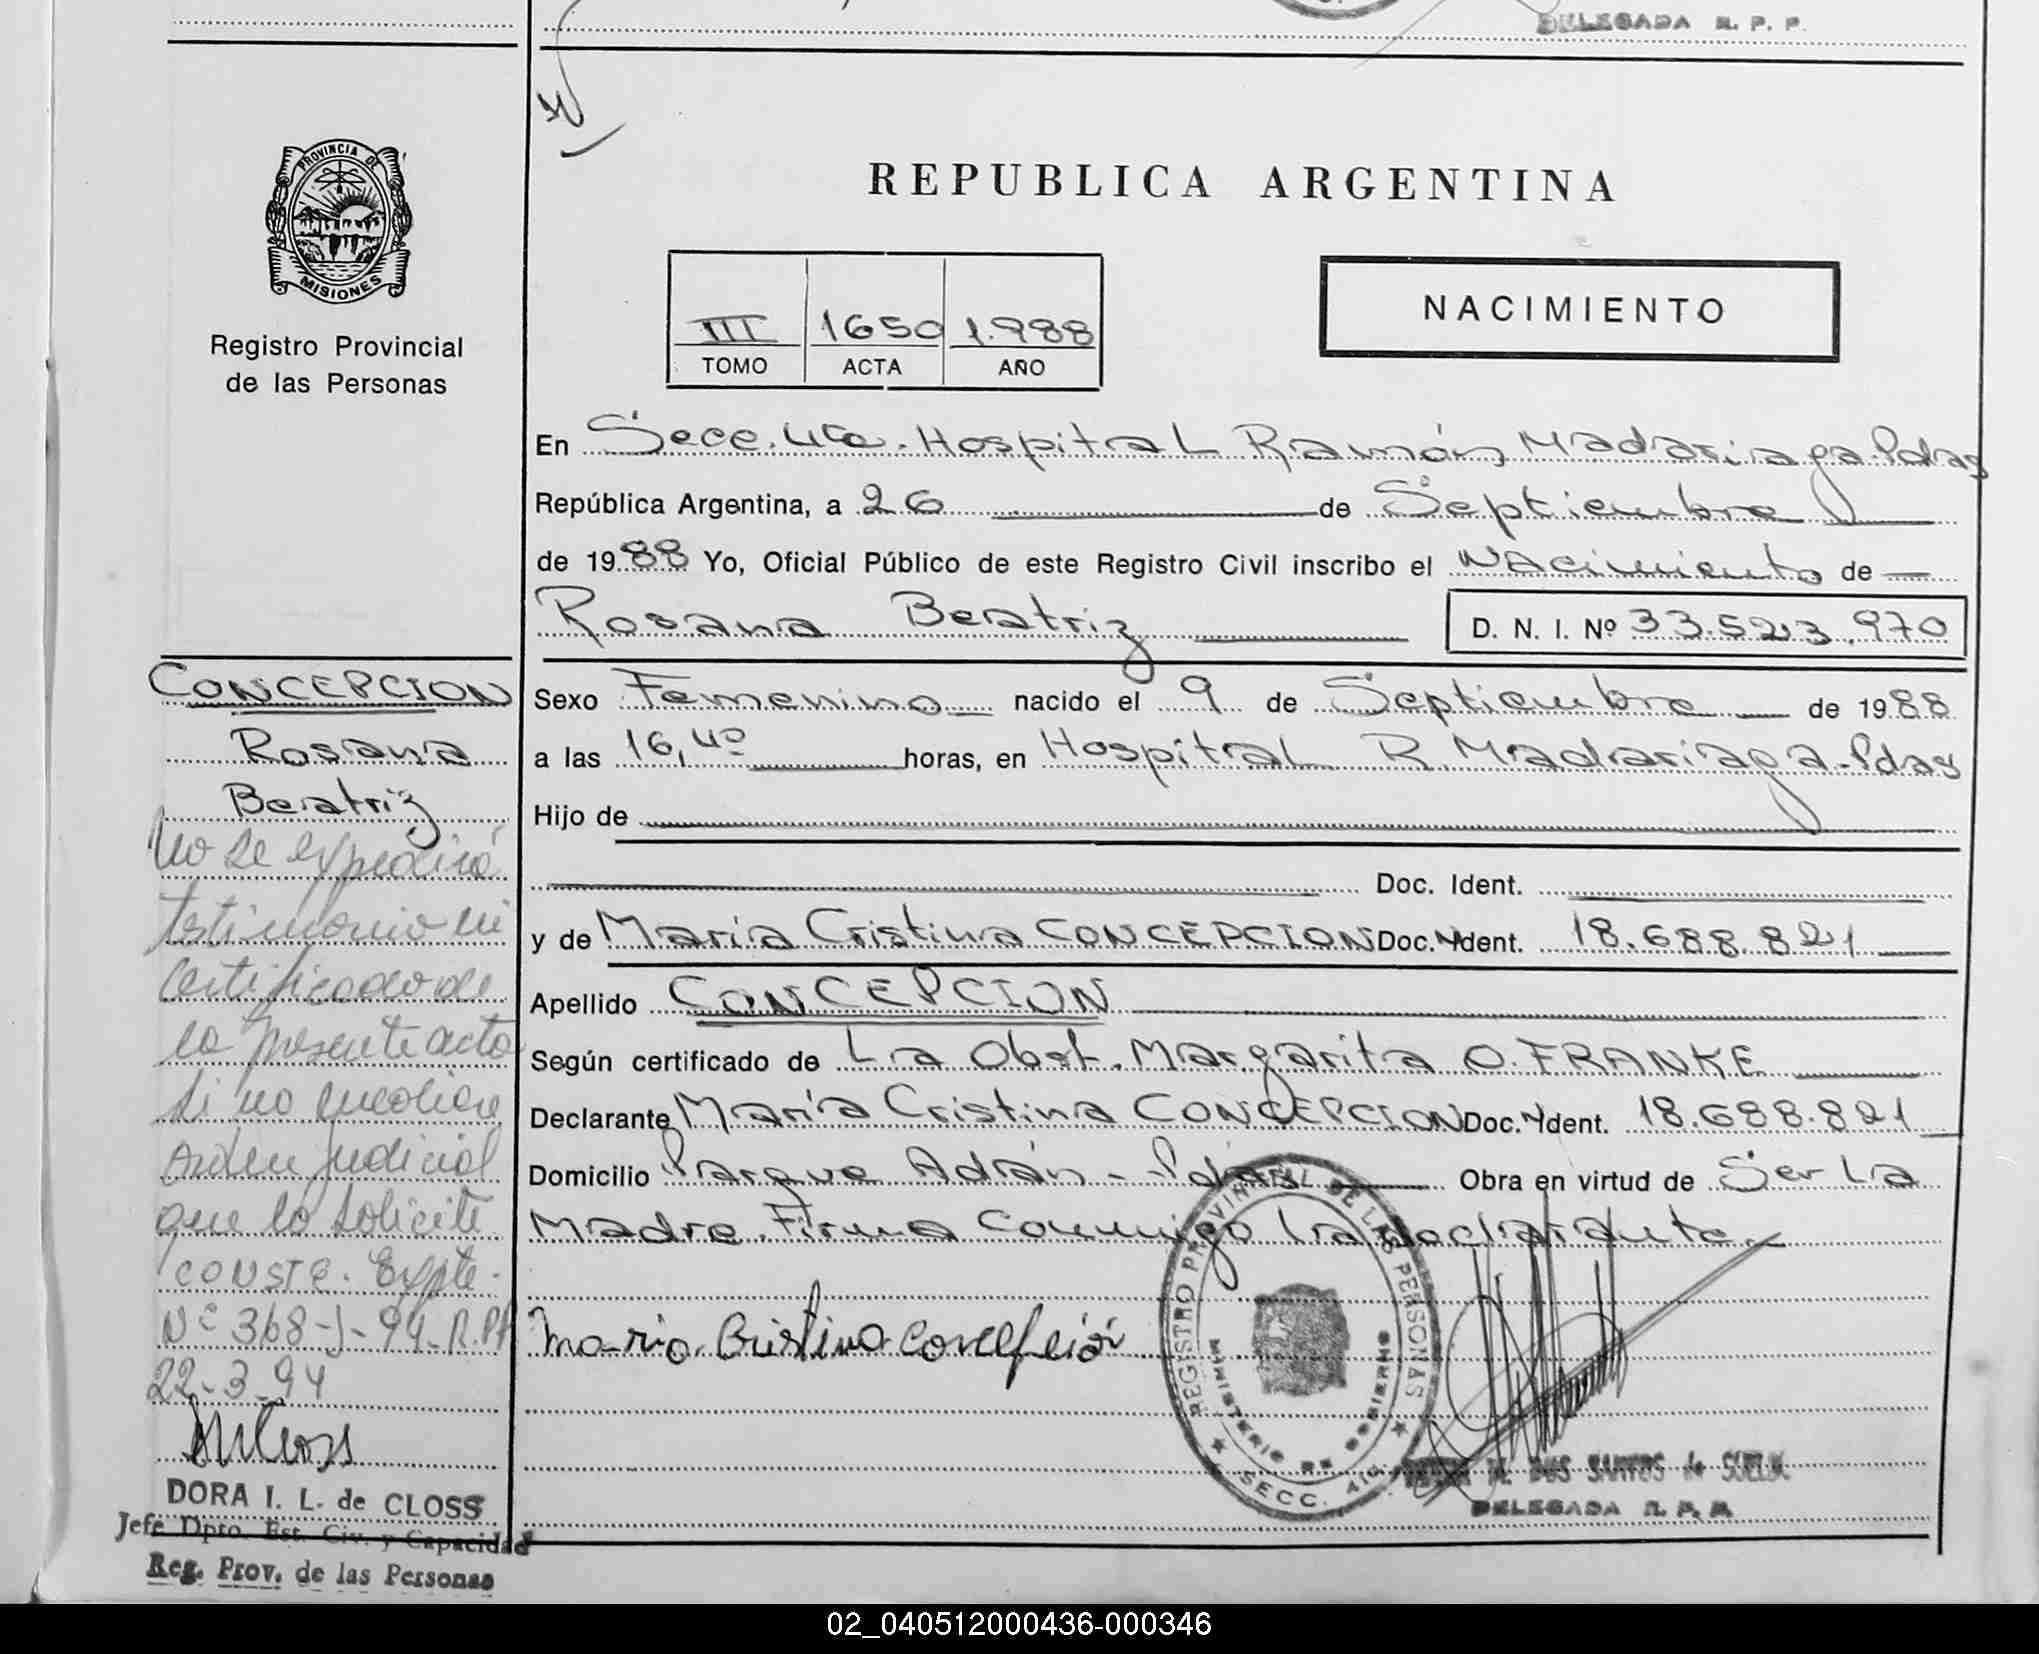 DELEGADA R. P. P.
PROVINCIA DE
MISIONES
Registro Provincial
de las Personas
REPUBLICA ARGENTINA
III 1650 1.988
TOMO ACTA AÑO
NACIMIENTO
En Secc. 4ta. Hospital Ramón Madariaga. Pdas
República Argentina, a 26 de Septiembre
de 1988 Yo, Oficial Público de este Registro Civil inscribo el Nacimiento de
Rosana Beatriz D. N. I. Nº 33.523.970
Sexo Femenino nacido el 9 de Septiembre de 1988
a las 16,40 horas, en Hospital R. Madariaga - Pdas
Hijo de
Doc. Ident.
y de María Cristina CONCEPCION Doc. Ident. 18.688.821
Apellido CONCEPCION
Según certificado de La Obst. Margarita O. FRANKE
Declarante María Cristina CONCEPCION Doc. Ident. 18.688.821
Domicilio Parque Adrán - Pdas Obra en virtud de Ser La
Madre. Firma Conmigo la declarante
Maria Cristina Concepción
REGISTRO PROVINCIAL DE LAS PERSONAS
MINISTERIO DE GOBIERNO
SECC. 4ta.
DOS SANTOS de
DELEGADA R. P. P.
CONCEPCION
Rosana
Beatriz
No se expedirá
testimonio ni
Certificado de
la presente acta
si no mediare
Orden judicial
que lo solicite
CONSTE. Expte.
Nº 368-J-94-R.PP
22-3-94
DORA I. L. de CLOSS
Jefe Dpto. Est. Civ. y Capacidad
Reg. Prov. de las Personas
02_040512000436-000346